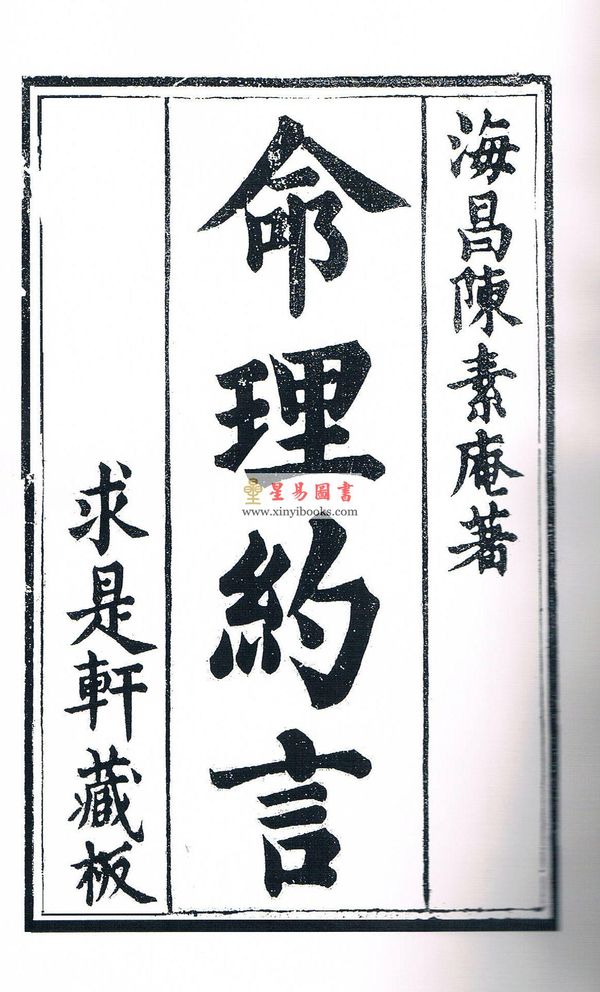 海昌陳素庵著
命理約言
求是軒藏板
星易圖書
www.xinyibooks.com